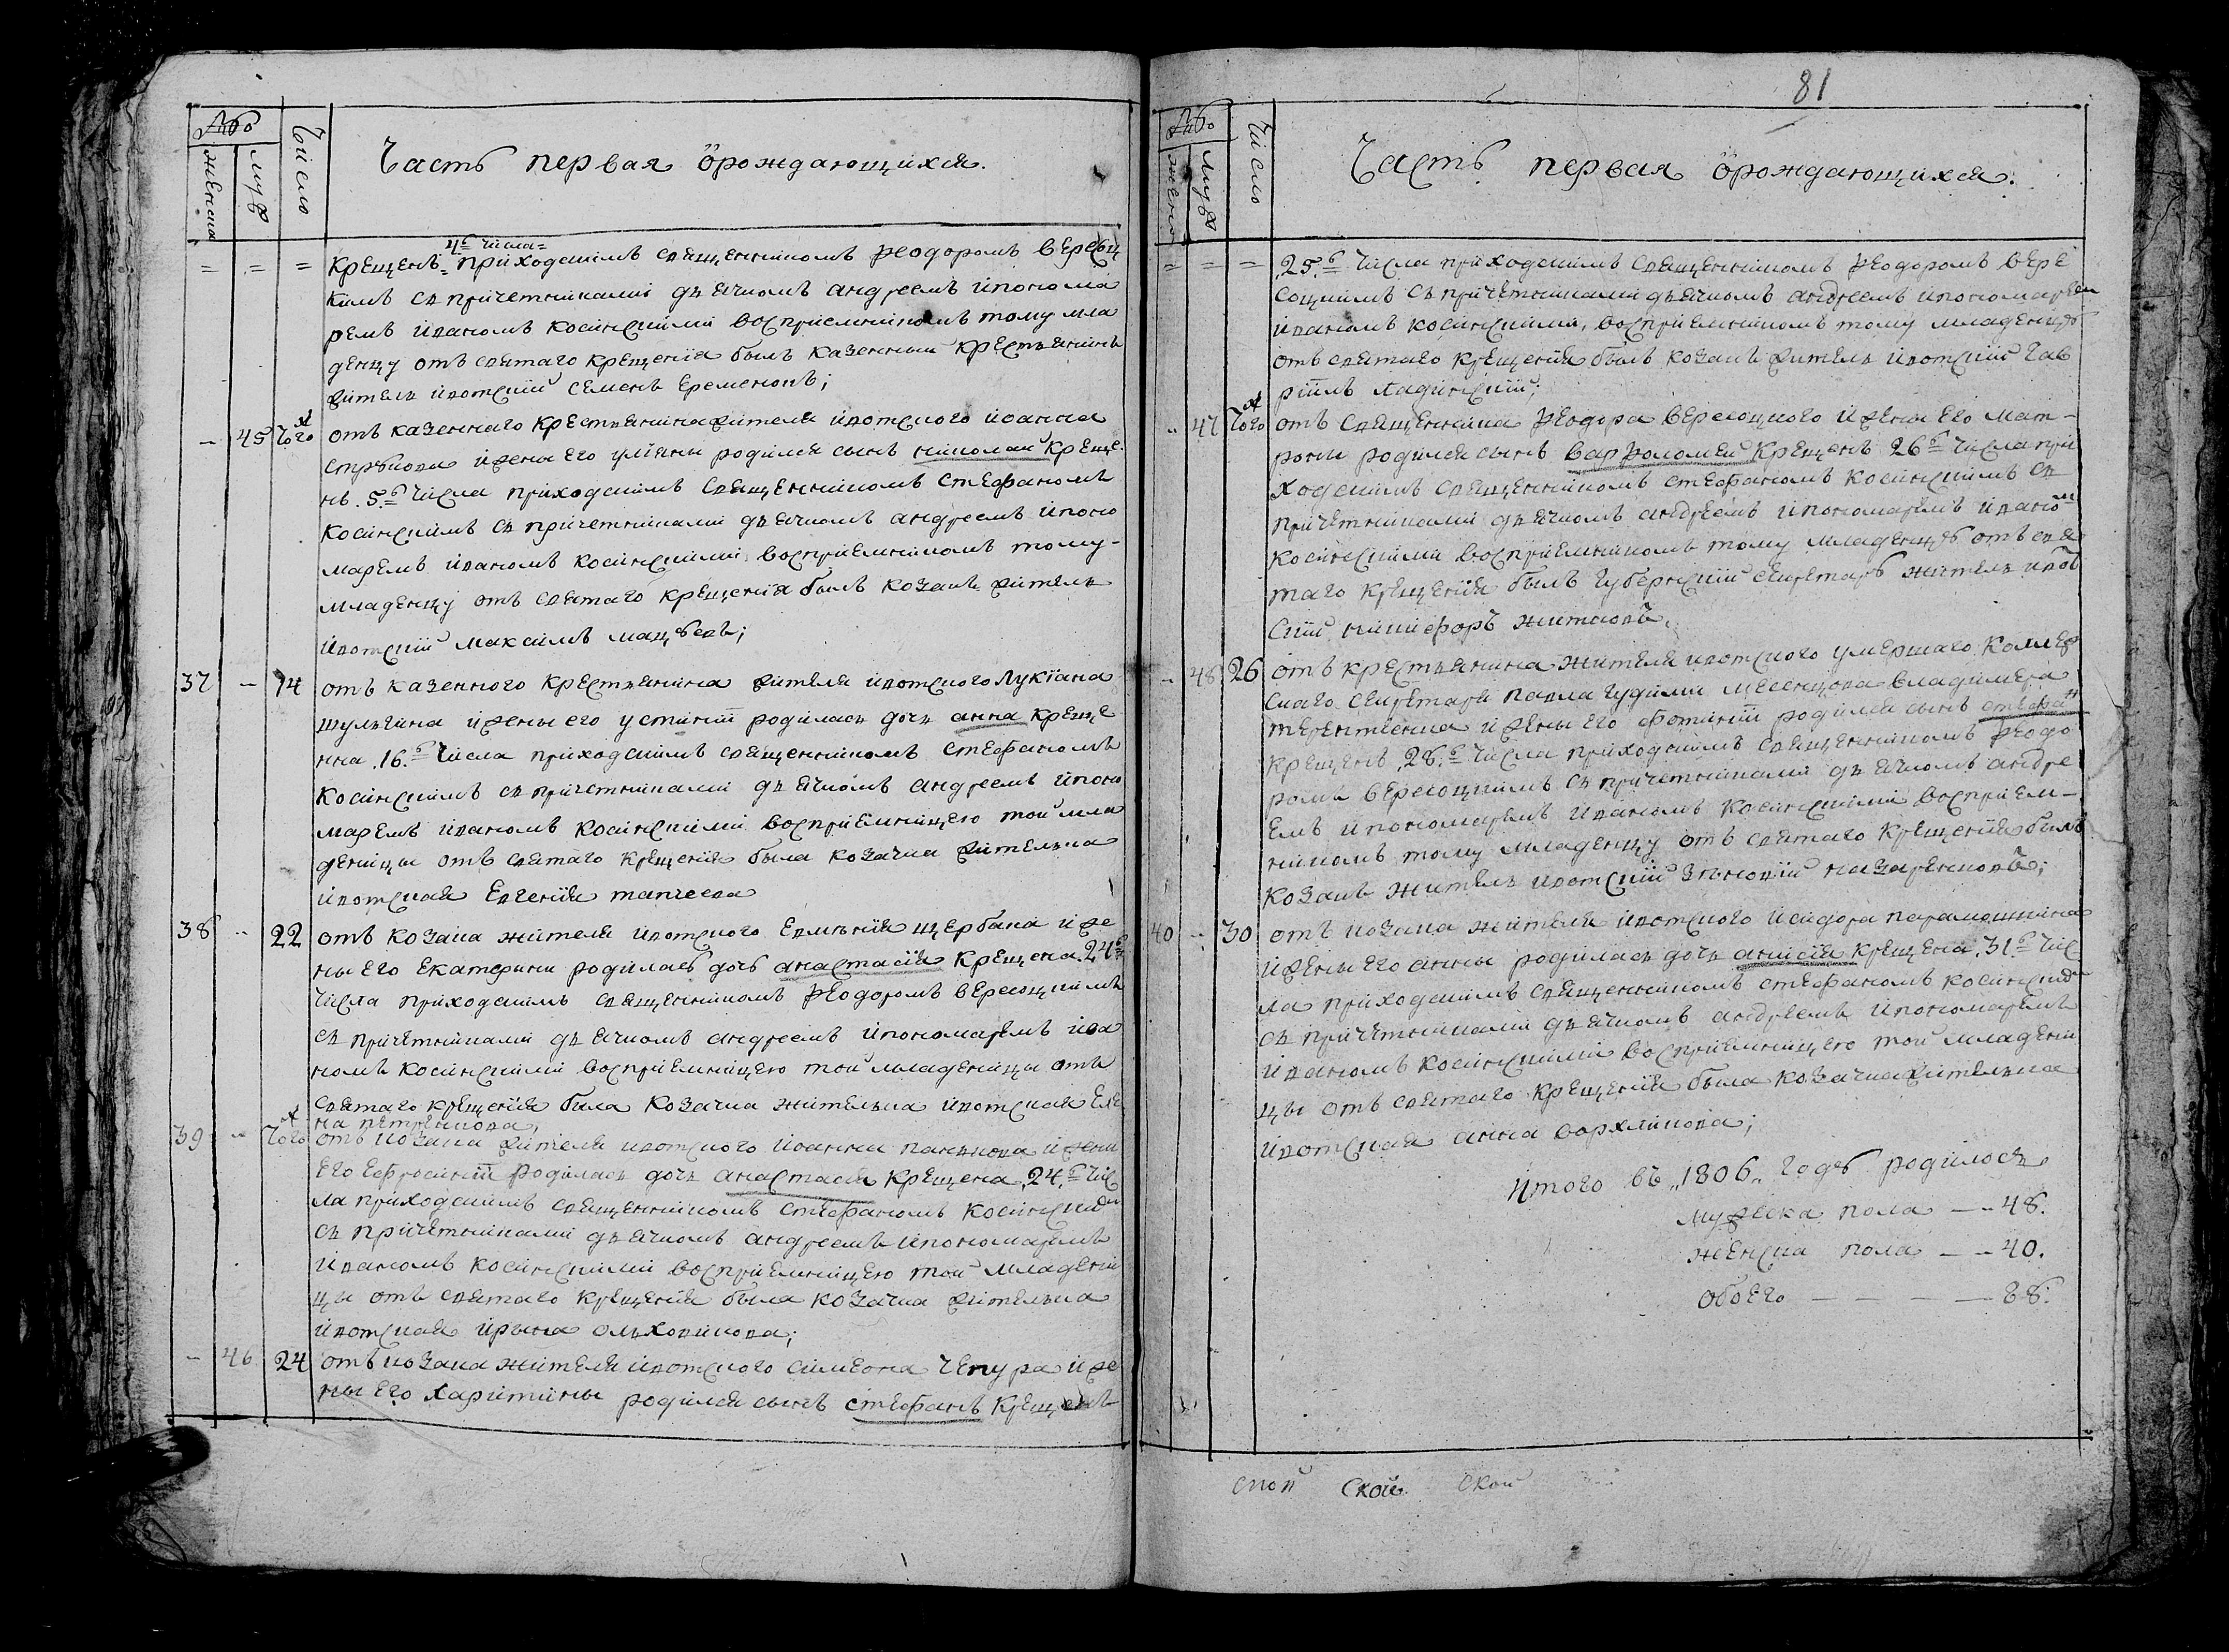 Число
мужб
женска
Часть первая орождающихся.
4г числа
= = = крещенъ приходскимъ священникомъ Феодоромъ вересоц
кимъ съ причетниками дьячкомъ андреемъ ипонома
ремъ иваномъ косинскими восприемникомъ тому мла
денцу отъ святаго крещенія былъ казенный крестьянинъ
житель ивотскій семенъ еременокъ;
- 45 того отъ казеннаго крестьянина жителя ивотского иоанна
стрѣкова ижены его уліяны родился сынъ николай креще
нъ .5г числа приходскимъ священникомъ стефаномъ
косинскимъ съ причетниками дьячкомъ андреемъ ипоно
маремъ иваномъ косинскими восприемникомъ тому
младенцу отъ святаго крещенія былъ козакъ житель
ивотскій максимъ мацѣевъ;
37 - 14 отъ казенного крестьянина жителя ивотского Лукіана
шульгина ижены его устиніи родилась дочь анна креще
нна .16.г числа приходскимъ священникомъ стефаномъ
косинскимъ съ причетниками дьячкомъ андреемъ ипоно
маремъ иваномъ косинскими восприемницею той мла
деницы отъ святаго крещенія была козачка жителька
ивотская Евгенія
38 - 22 отъ козака жителя ивотского Евменія щербака иже
ны его екатерины родилась дочь анастасія крещена 24г
числа приходскимъ священникомъ Феодоромъ вересоцкимъ
съ причетниками дьячкомъ андреемъ ипономаремъ ива
номъ косинскими восприемницею той младеницы отъ
святаго крещенія была козачка жителька ивотская Еле
на петренкова;
39 - того отъ козака жителя ивотского иоанна панькова ижены
его ефросиніи родилась дочь анастасія крещена .24.г чис
ла приходскимъ священникомъ стефаномъ косинским
съ причетниками дьячкомъ андреемъ ипономаремъ
иваномъ косинскими восприемницею той младени
цы отъ святаго крещенія была козачка жителька
ивотская ирына ольховикова;
- 46 24 отъ козака жителя ивотского симеона чепура иже
ны его харитины родился сынъ стефанъ крещенъ
81
Число
мужб
женска
Часть первая орождающихся.
= = = .25.г числа приходскимъ священникомъ Феодоромъ вере
соцкимъ съ причетниками дьячкомъ андреемъ ипономарем
иваномъ косинскими, восприемникомъ тому младенцѣ
отъ святаго крещенія былъ козакъ житель ивотскій гав
ріилъ ладинскій;
- 47 того отъ священника Феодора вересоцкого ижены его мат-
роны родился сынъ варфоломей крещенъ 26г числа при
ходскимъ священникомъ стефаномъ косинскимъ съ
причетниками дьячкомъ андреемъ ипономаремъ ивано м
косинскими восприемникомъ тому младенцѣ отъ свя
таго крещенія былъ губернскій секретарь житель ивот
скій никифоръ житковъ.
- 48 26 отъ крестьянина жителя ивотского умершаго коллеж
ского секретаря павла гудими владимера
терентіенка ижены его фотиніи родился сынъ стефан
крещенъ .28.г числа приходскимъ священникомъ Феодо
ромъ вересоцкимъ съ причетниками дьячкомъ андре
емъ ипономаремъ иваномъ косинскими восприем-
никомъ тому младенцу отъ святаго крещенія былъ
козакъ житель ивотскій зѣновій назаренковъ;
40 - 30 отъ козака жителя ивотского исидора парамошкина
ижены его анны родилась дочь анисія крещена .31.г чис
ла приходскимъ священникомъ стефаномъ косинским
съ причетниками дьячкомъ андреемъ ипономаремъ
иваномъ косинскими восприемницею той младени
цы отъ святаго крещенія была козачка жителька
ивотская анна
итого въ „1806„ годѣ родилось
мужеска пола — 48.
женска пола — 40.
обоего — — — 88.
ской ской ской